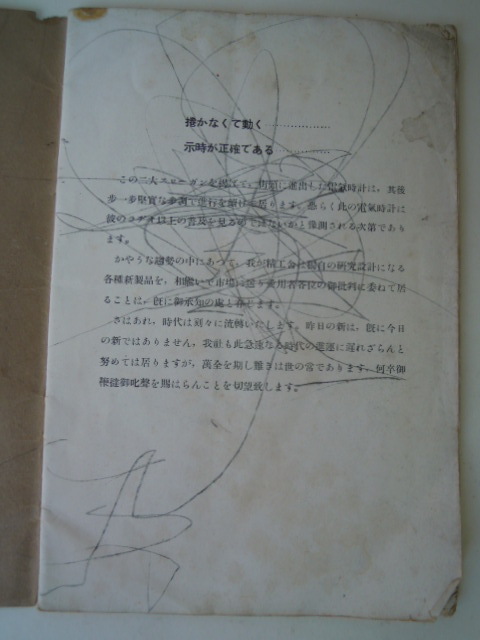 捲かなくて動く………………
示時が正確である……………
この二大スローガンを掲げて、街頭に進出した電氣時計は、其後
歩一歩堅實な歩調で進行を續けて居ります。恐らく此の電氣時計は
彼のラヂオ以上の普及を見るのではないかと豫測される次第であり
ます。
かやうな趨勢の中にあつて、我が精工舍は獨自の研究設計になる
各種新製品を、相繼いで市場に送り愛用者各位の御批判に委ねて居
ることは、旣に御承知の處と存じます。
さはあれ、時代は刻々に流轉いたします。昨日の新は、旣に今日
の新ではありません、我社も此急速なる時代の進運に遅れざらんと
努めては居りますが、萬全を期し難きは世の常であります、何卒御
鞭撻御叱聲を賜はらんことを切望致します。